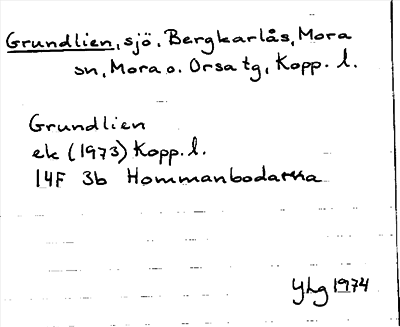 Grundlien, sjö. Bergkarlås, Mora
sn, Mora o. Orsa tg, Kopp. l.
Grundlien
ek (1973) Kopp. l.
14F 3b Hommanbodarna
YLg 1974